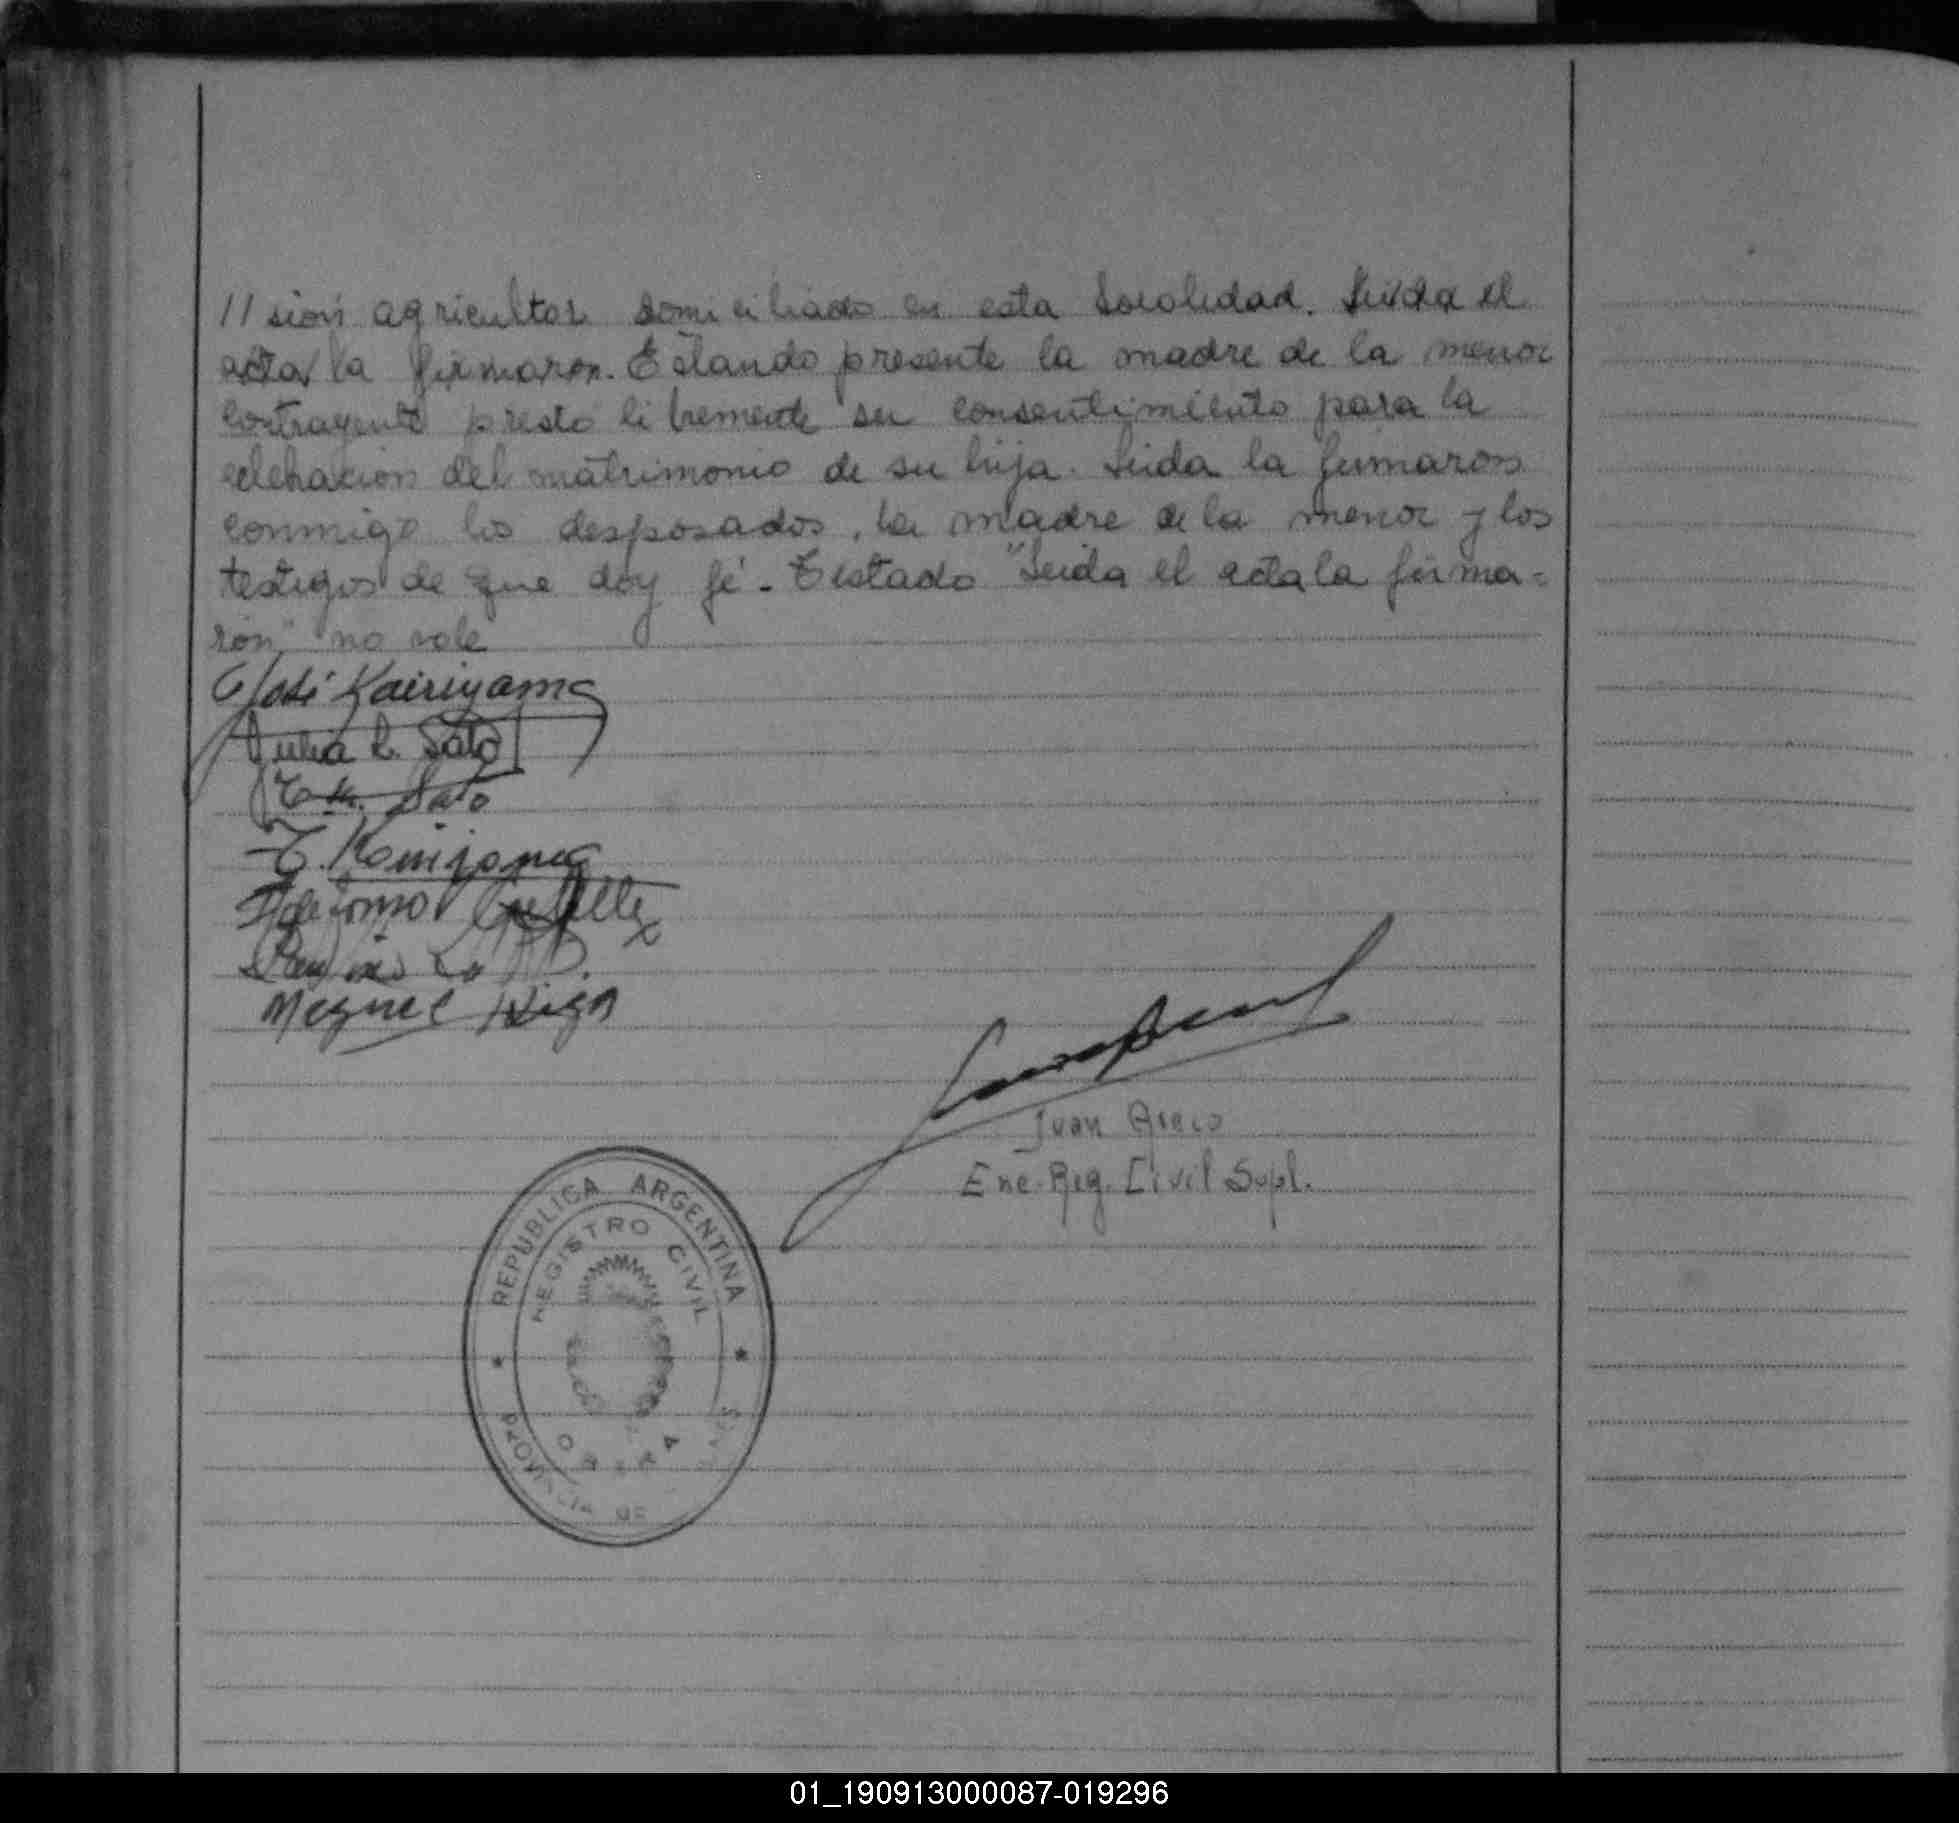 // sion agricultor domiciliado en esta localidad. Leida el
acta la firmaron. Estando presente la madre de la menor
contrayente prestó libremente su consentimiento para la
celebracion del matrimonio de su hija. Leida la firmaron
conmigo los desposados, la madre de la menor y los
testigos de que doy fé. Testado "Leida el acta la firma=
ron" no vale
José Kairiyama
Julia L. Sato
Sato
T.
Ildefonso
Miguel Higa
Juan Greco
Enc. Reg. Civil Supl.
REPUBLICA ARGENTINA
REGISTRO CIVIL
PROVINCIA DE BS. AS.
01_190913000087-019296